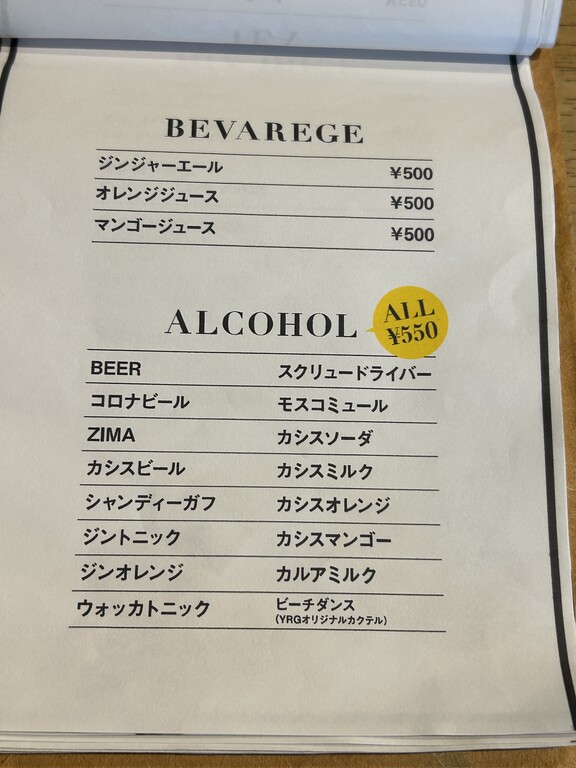 BEVAREGE
ジンジャーエール ¥500
オレンジジュース ¥500
マンゴージュース ¥500
ALCOHOL
ALL
¥550
BEER スクリュードライバー
コロナビール モスコミュール
ZIMA カシスソーダ
カシスビール カシスミルク
シャンディーガフ カシスオレンジ
ジントニック カシスマンゴー
ジンオレンジ カルアミルク
ウォッカトニック ビーチダンス
(YRGオリジナルカクテル)